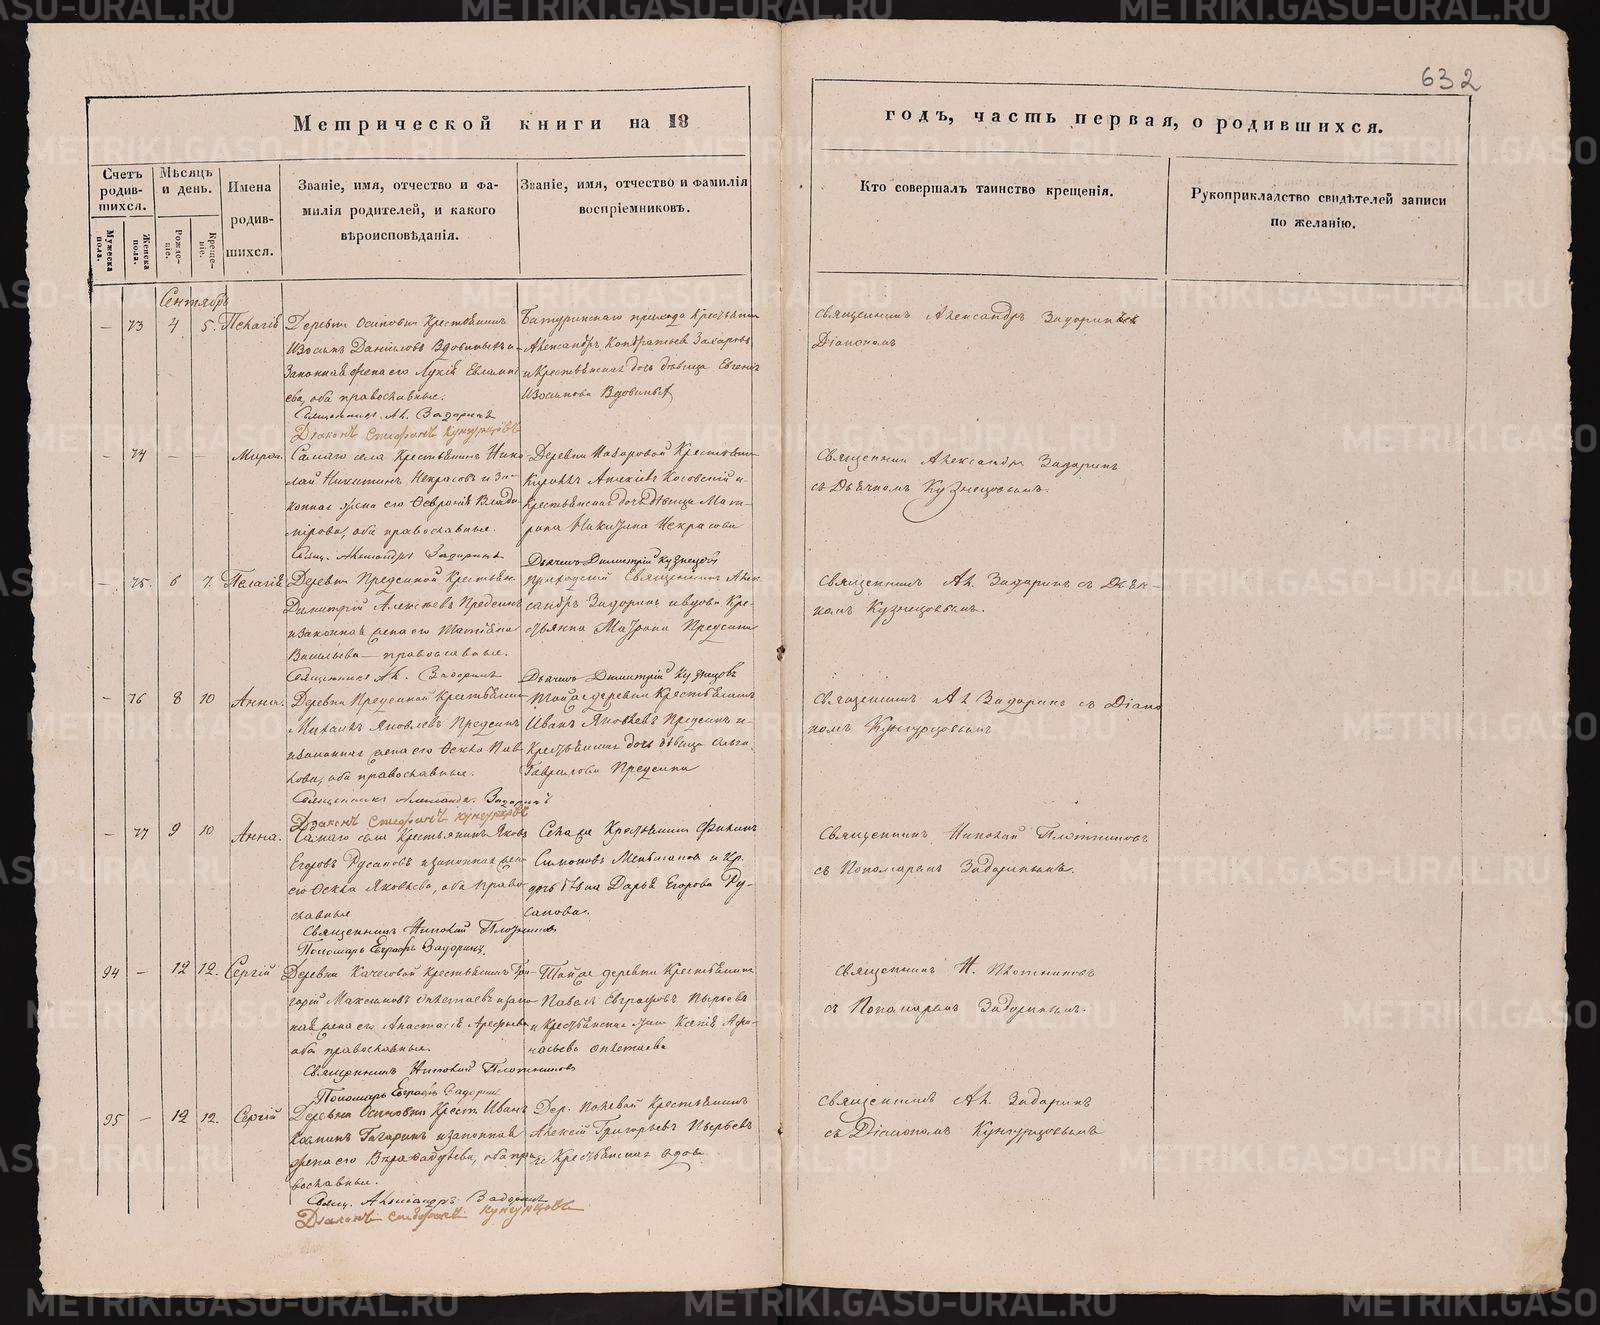 632
Метрической книги на 18
годъ, часть первая, о родившихся.
Счетъ родив- шихся.
Мужеска пола.
Женска пола.
Мѣсяцъ и день.
Рожде- ніе.
Креще- ніе.
Имена родив- шихся.
Званіе, имя, отчество и фа-
милія родителей, и какого
вѣроисповѣданія.
Званіе, имя, отчество и фамилія
воспріемниковъ.
Кто совершалъ таинство крещенія.
Рукоприкладство свидѣтелей записи
по желанію.
Сентябрь
— 73 4 5. Пелагія
Деревни Осиновки Крестьянинъ
Даниловъ Вдовиныхъ и
Законная жена его Лукія Евлампі
ева, оба православные.
Священникъ Ал. Задоринъ
Діаконъ Стефанъ Кунгурцовъ
Батуринскаго прихода Крестьянинъ
Александръ Кондратьевъ Захаровъ
и Крестьянская дочь дѣвица Евгенія
Вдовиныхъ
Священникъ Александръ Задоринъ съ
Діакономъ
— 74 — —
Самаго села Крестьянинъ Нико
лай Никитинъ Некрасовъ и За-
конная жена его Февронія Влади
мірова, оба православные.
Свящ. Александръ Задоринъ
Дьячекъ Димитрій Кузнецовъ
Деревни Назаровой Крестьянинъ
Крестьянская дочь дѣвица Мат-
рона Никитина Некрасова
Священникъ Александръ Задоринъ
съ Дьячкомъ Кузнецовымъ.
— 75. 6 7. Пелагія
Деревни Предеиной Крестьян.
Димитрій Алексѣевъ Предеинъ
и законная жена его Татіана
Васильева — православные.
Священникъ Ал. Задоринъ
Дьячекъ Димитрій Кузнецовъ
Приходскій Священникъ Алек
сандръ Задоринъ и вдова Кре-
стьянка Матрона Предеина
Священникъ Ал. Задоринъ съ Дьяч-
комъ Кузнецовымъ.
— 76 8 10 Анна.
Деревни Предеиной Крестьянинъ
Михаилъ Яковлевъ Предеинъ
и законная жена его Фекла Пав
лова, оба православные.
Священникъ Александръ Задоринъ
Діаконъ Стефанъ Кунгурцовъ
Той же деревни Крестьянинъ
Иванъ Яковлевъ Предеинъ и
Крестьянская дочь дѣвица Ольга
Гаврилова Предеина
Священникъ Ал Задоринъ съ Діако
номъ Кунгурцовымъ
— 77 9 10 Анна.
Самаго села Крестьянинъ Яковъ
Егоровъ Русаковъ и законная жена
его Фекла Яковлева, оба право
славные
Священникъ Николай Плотниковъ
Пономарь Евграфъ Задоринъ
Села же Крестьянинъ Филипъ
Симоновъ и Кр.
дочь дѣвка Дарья Егорова Ру-
сакова.
Священникъ Николай Плотниковъ
съ Пономаремъ Задоринымъ.
94 — 12 12. Сергій
Деревни Качесовой Крестьянинъ Гри-
горій Максимовъ и закон
ная жена его Анастасія Арефьева
оба православные.
Священникъ Николай Плотниковъ
Пономарь Евграфъ Задоринъ
Той же деревни Крестьянинъ
Павелъ Евграфовъ Пырьевъ
и Крестьянская жена Ксенія Афа-
насьева
Священникъ Н. Плотниковъ
съ Пономаремъ Задоринымъ.
95 — 12 12. Сергій
Деревни Осиновки Крест Иванъ
Гагаринъ и законная
жена его Вѣра оба пра
вославные.
Свящ. Александръ Задоринъ
Діаконъ Стефанъ Кунгурцовъ
Дер. Полевой Крестьянинъ
Алексій Григорьевъ Пырьевъ
и Крестьянская вдова
Священникъ Ал. Задоринъ
съ Діакономъ Кунгурцовымъ
METRIKI.GASO-URAL.RU